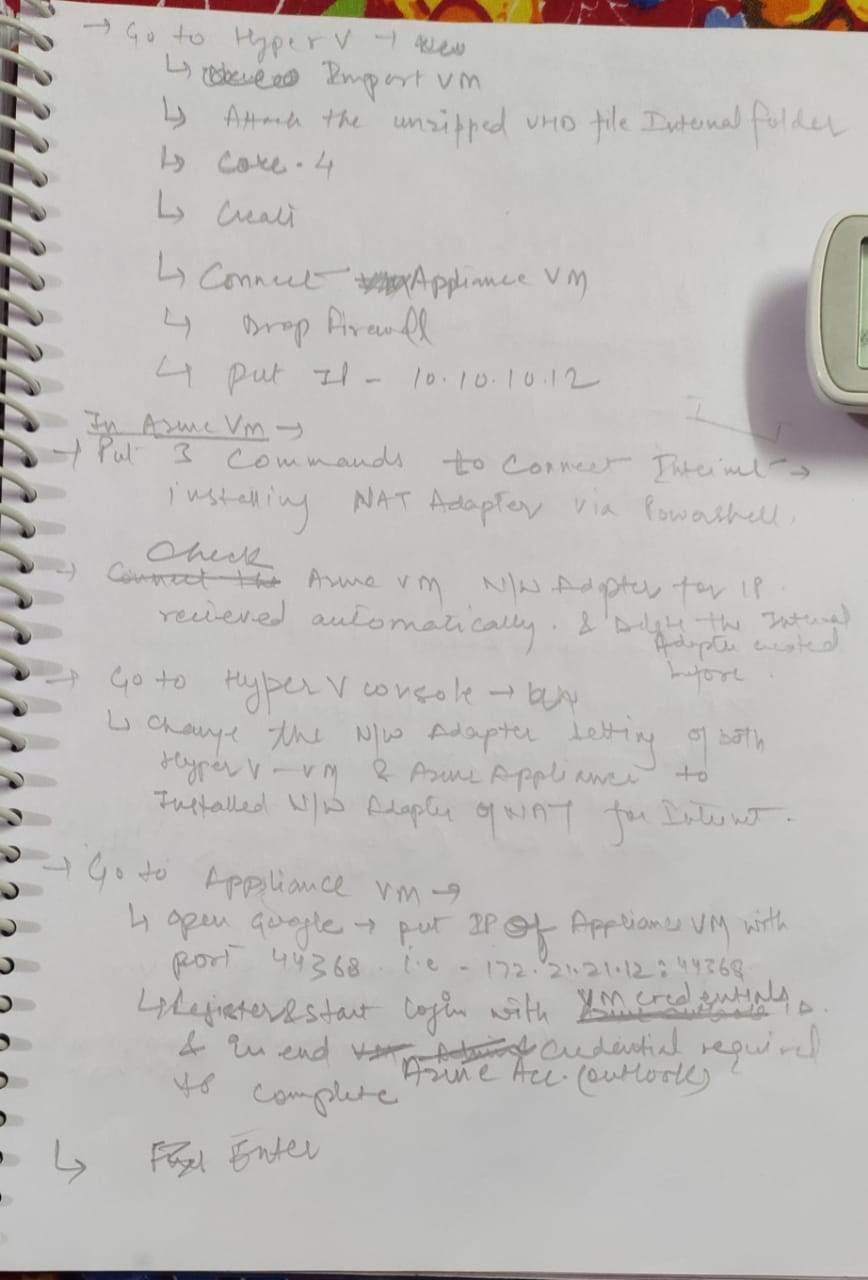 → Go to Hyper V → New
↳ Import VM
↳ Attach the unzipped VHD file Internal folder
↳ Core - 4
↳ Create
↳ Connect Appliance VM
↳ Drop Firewall
↳ Put IP - 10.10.10.12
In Azure VM →
→ Put 3 Commands to Connect Internet →
installing NAT Adapter via Powershell.
Check
→ Connect the Azure VM N/W Adapter for IP
recieved automatically. & Delete the Internal
Adapter created
before.
→ Go to Hyper V console →
↳ Change the N/W Adapter Setting of both
Hyper V - VM & Azure Appliance to
Installed N/W Adapter of NAT for Internet.
→ Go to Appliance VM →
↳ open Google → put IP of Appliance VM with
port 44368 i.e - 172.21.21.12:44368
↳ Register & start login with VM credentials
& In end Credential required
to complete Azure Acc. (outlook)
↳ Enter